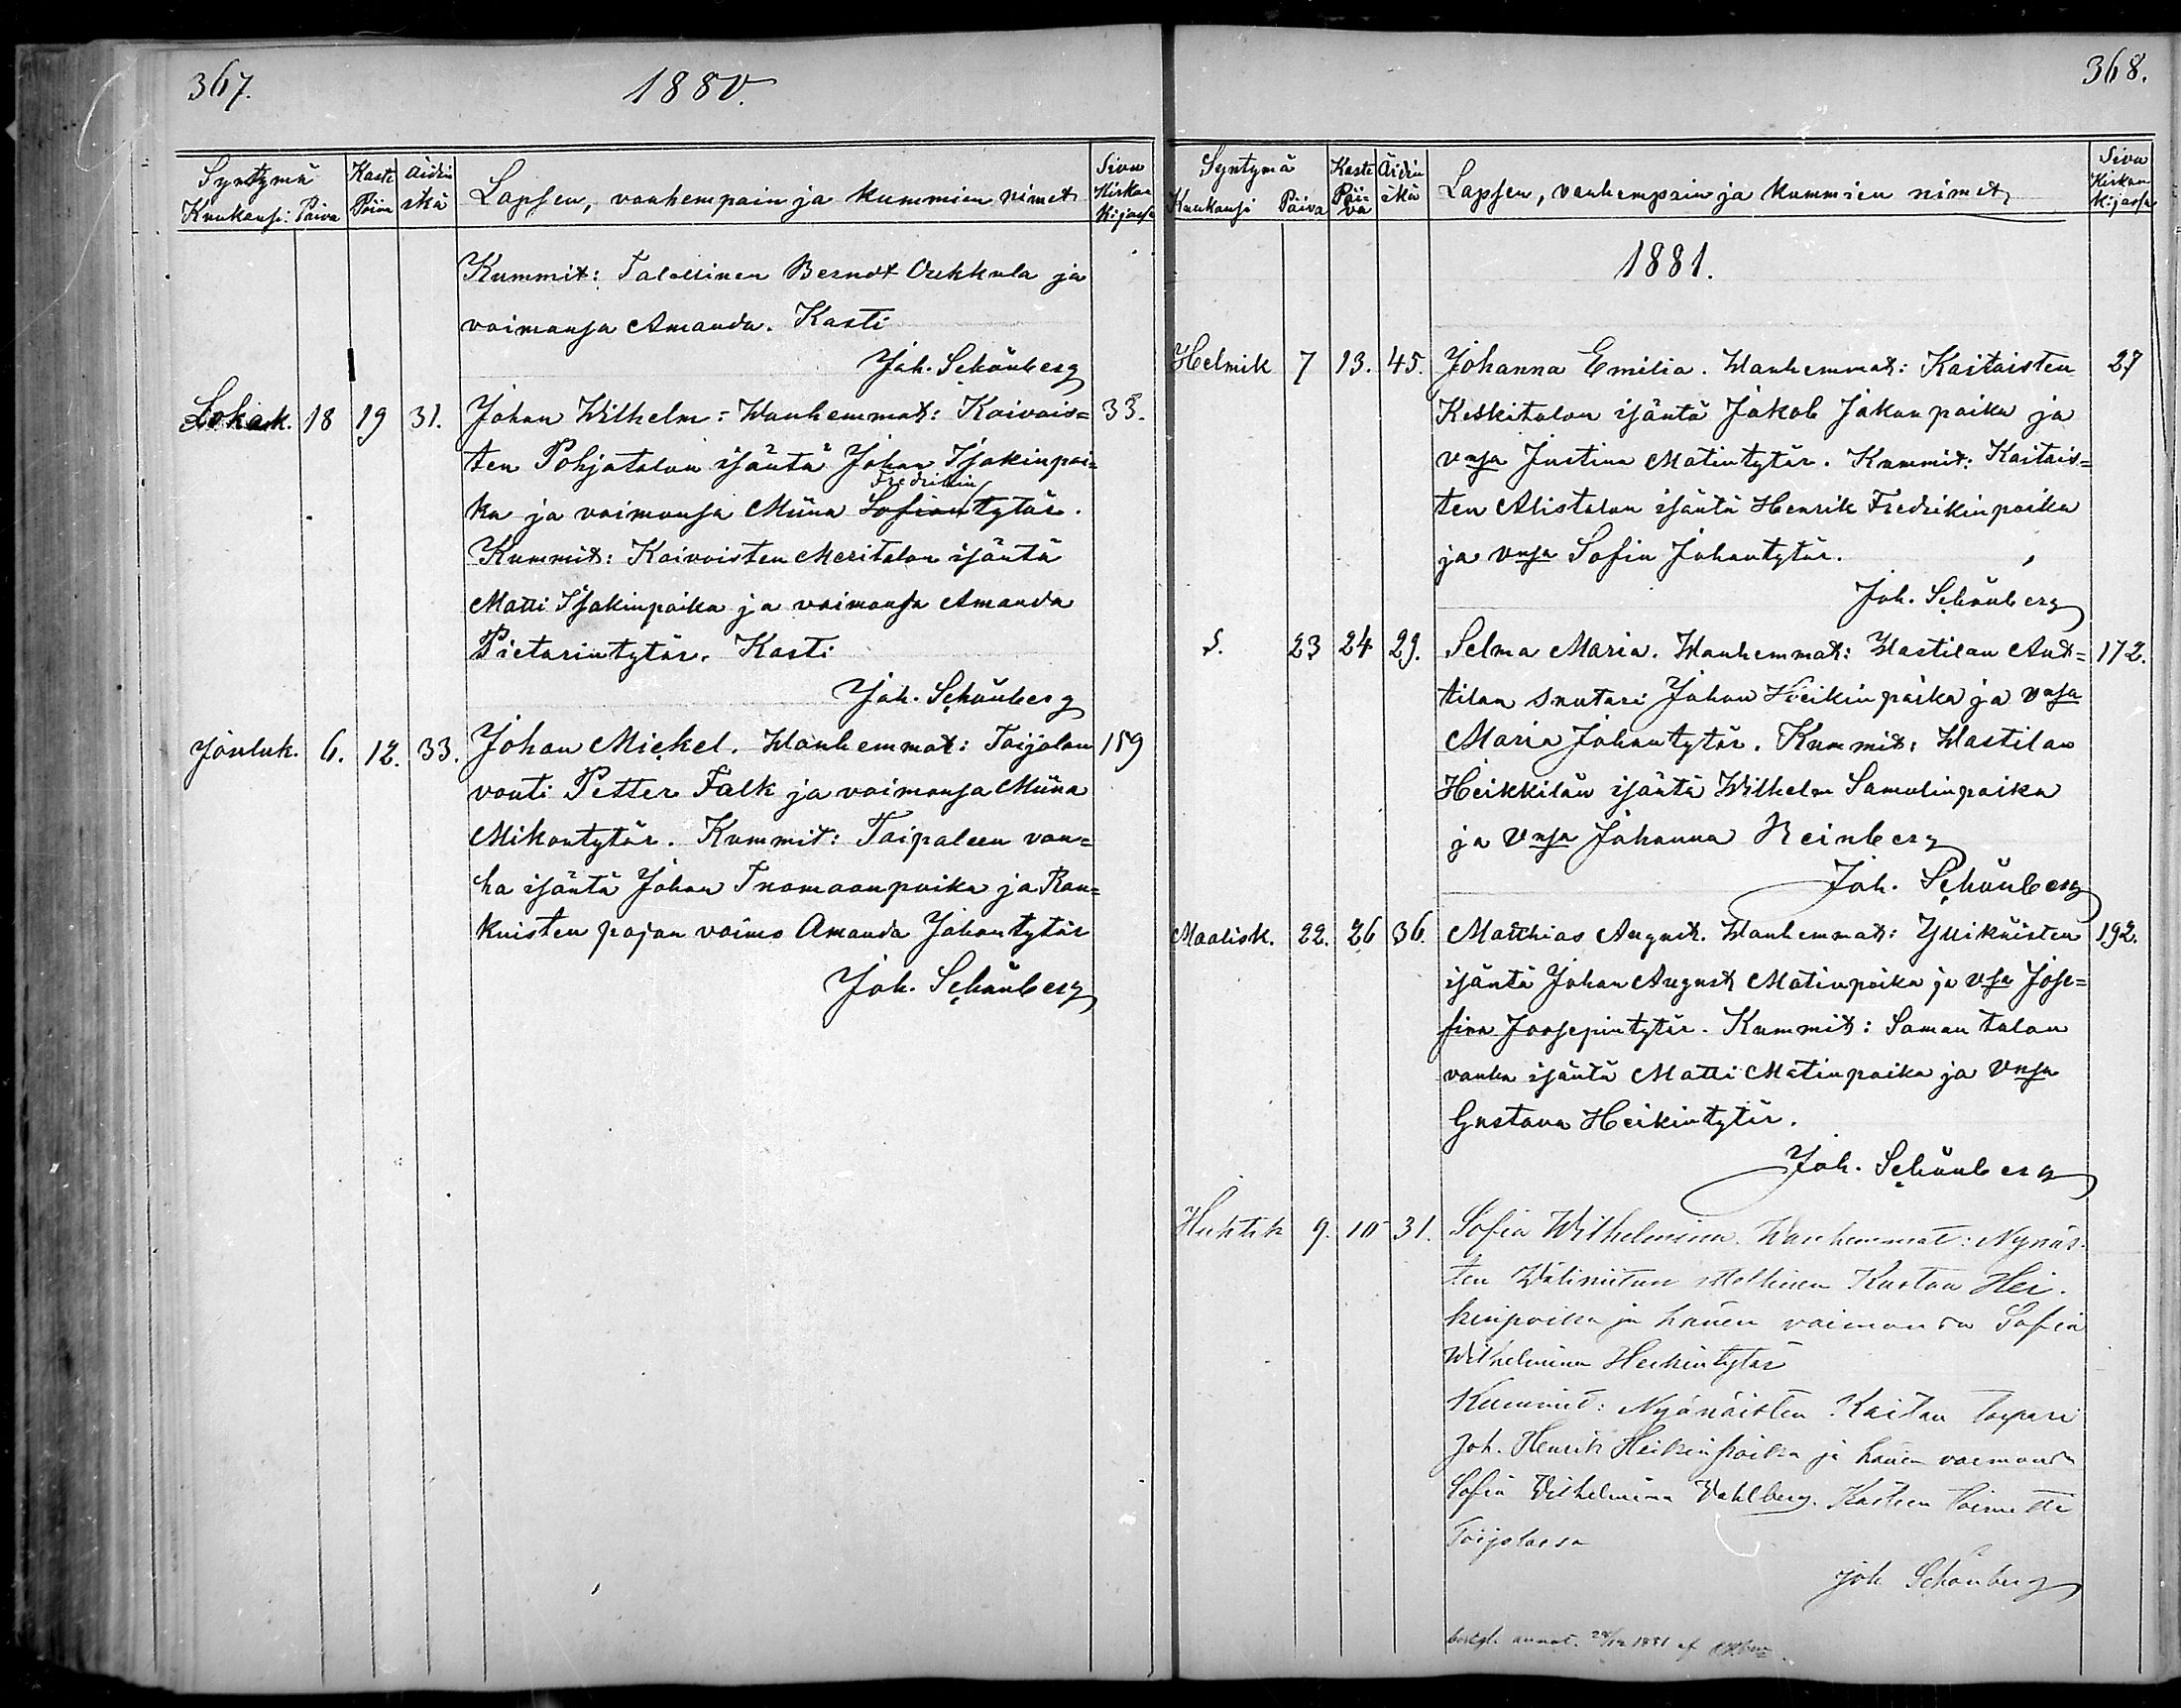 367.
1880.
Syntymä Kaste Äidin Lapsen, vanhempain ja kummien nimet Sivu
Kuukausi: Päivä Päivä ikä Kirkon
K:jassa
Kummit: Talollinen Berndt Oukkula ja
vaimonsa Amanda. Kasti
Joh. Schönberg
Lokak. 18 19 31. Johan Wilhelm: Wanhemmat: Kaivois= 33.
ten Pohjatalon isäntä Johan Isakinpoi=
Fredrikin
ka ja vaimonsa Miina Sofian tytär.
Kummit: Kaivoisten Meritalon isäntä
Matti Isakinpoika ja vaimonsa Amanda
Pietarintytär. Kasti
Joh. Schönberg
Jouluk. 6. 12. 33. Johan Mickel. Wanhemmat: Taijolan 159
vouti Petter Falk ja vaimonsa Miina
Mikontytär. Kummit: Taipaleen van=
ha isäntä Johan Tuomaanpoika ja Ran=
kuisten pajan vaimo Amanda Johantytär
Joh. Schönberg
368.
Syntymä Kaste Äidin Lapsen, vanhempain ja kummien nimet Sivu
Kuukausi Päivä Päi= ikä Kirkon
vä K:jassa
1881.
Helmik 7 13. 45. Johanna Emilia. Wanhemmat: Kaitaisten 27
Keskitalon isäntä Jakob Jakonpoika ja
vnsa Justina Matintytär. Kummit: Kaitais=
ten Alistalon isäntä Henrik Fredrikinpoika
ja vnsa Sofia Johantytär.
Joh. Schönberg
S. 23 24 29. Selma Maria. Wanhemmat: Wastilan Ant= 172.
tilan suutari Johan Heikinpoika ja vnsa
Maria Johantytär. Kummit: Wastilan
Heikkilän isäntä Wilhelm Samulinpoika
ja vnsa Johanna Reinberg
Joh. Schönberg
Maalisk. 22. 26 36. Matthias August. Wanhemmat: Yliknisten 192.
isäntä Johan August Matinpoika ja vsa Jose=
fina Joosepintytär. Kummit: Saman talon
vanha isäntä Matti Matinpoika ja vnsa
Gustava Heikintytär.
Joh. Schönberg
Huhtik 9. 10 31. Sofia Wilhelmina. Wanhemmat: Nynäs-
ten Kustaa Hei-
kinpoika ja hänen vaimonsa Sofia
Wilhelmina Heikintytär
Kummit: Nynäisten Kaitan torpari
Joh. Henrik Heikinpoika ja hänen vaimonsa
Sofia Vilhelmina Vahlberg. Kasteen toimitti
Taijolassa
Joh Schönberg
1881 af